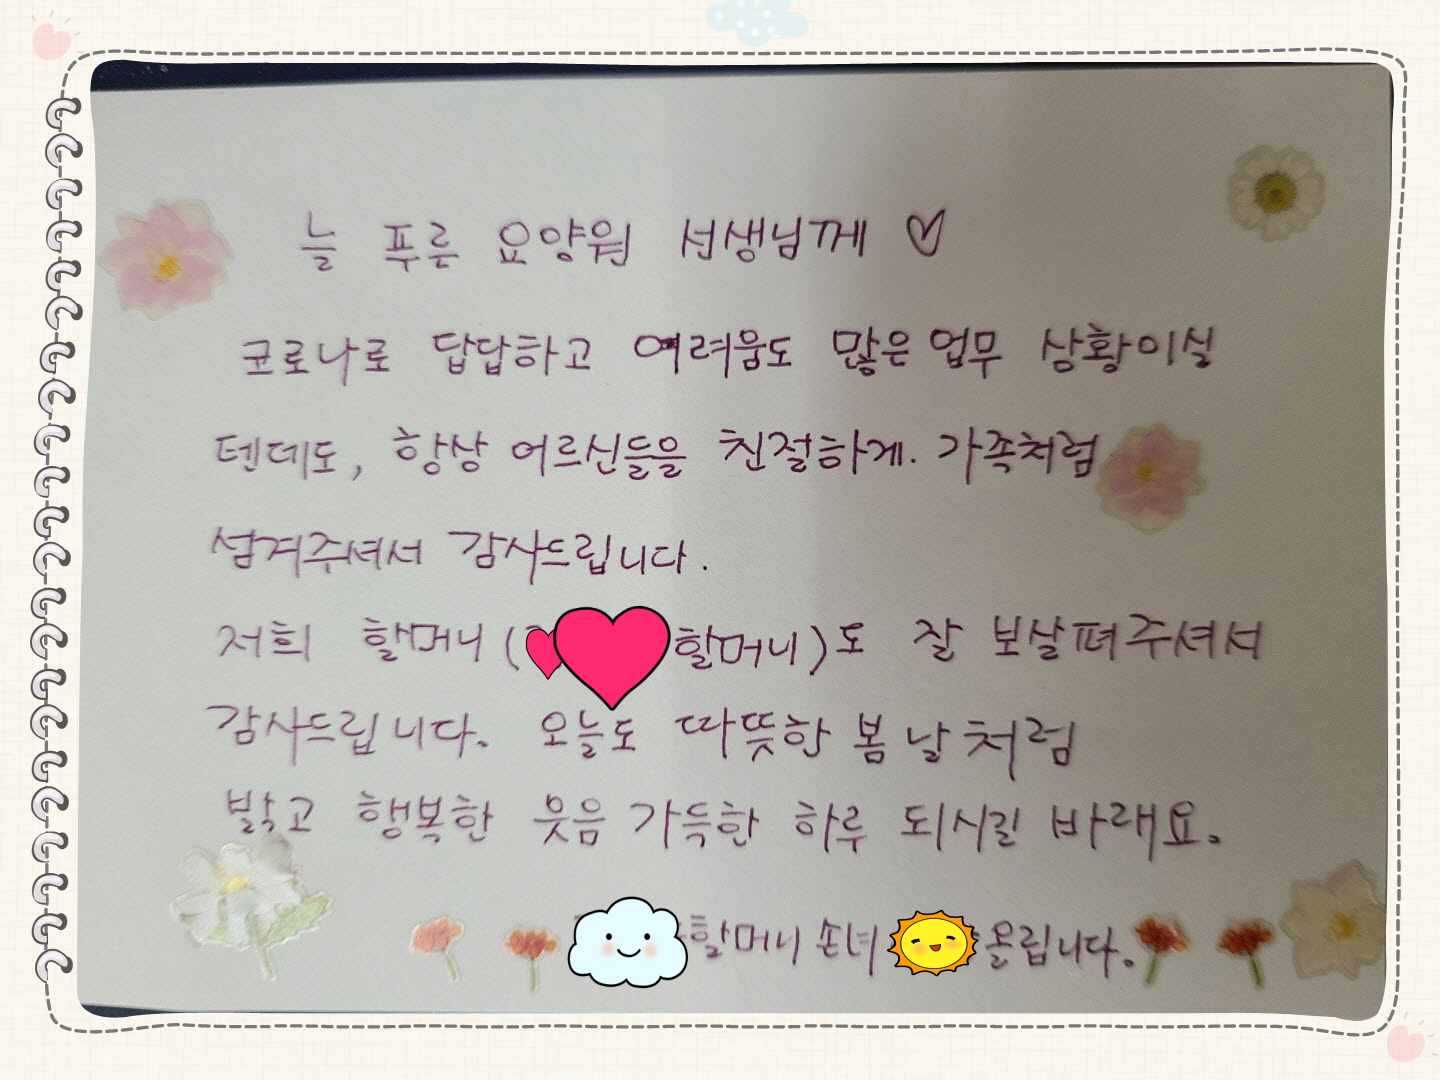 늘 푸른 요양원 선생님께 ♡
코로나로 답답하고 여려움도 많은 업무 상황이실
텐데도, 항상 어르신들을 친절하게. 가족처럼
섬겨주셔서 감사드립니다.
저희 할머니 ( 할머니)도 잘 보살펴주셔서
감사드립니다. 오늘도 따뜻한 봄 날 처럼
밝고 행복한 웃음 가득한 하루 되시길 바래요.
할머니 손녀 올립니다.